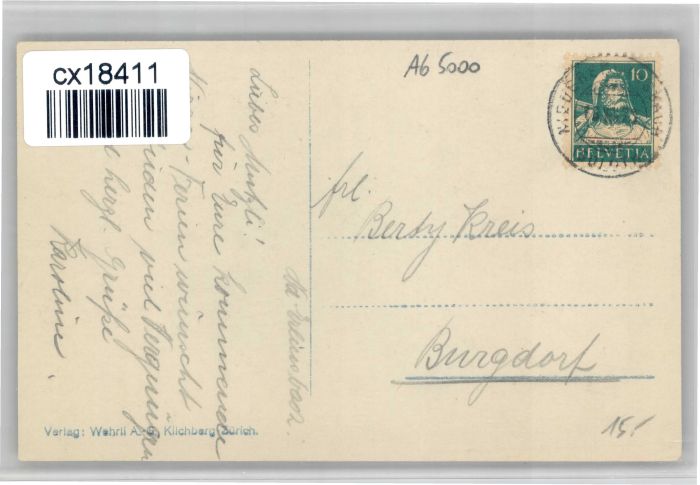 cx18411
A6 5000
10
HELVETIA
Liebes
für Eure kommende
Ferien wünscht
viel Vergnügen
hergl. Grüße
Karoline.
frl.
Berty Kreis
Burgdorf
15.-
Verlag: Wehrli A.G. Kilchberg Zürich.